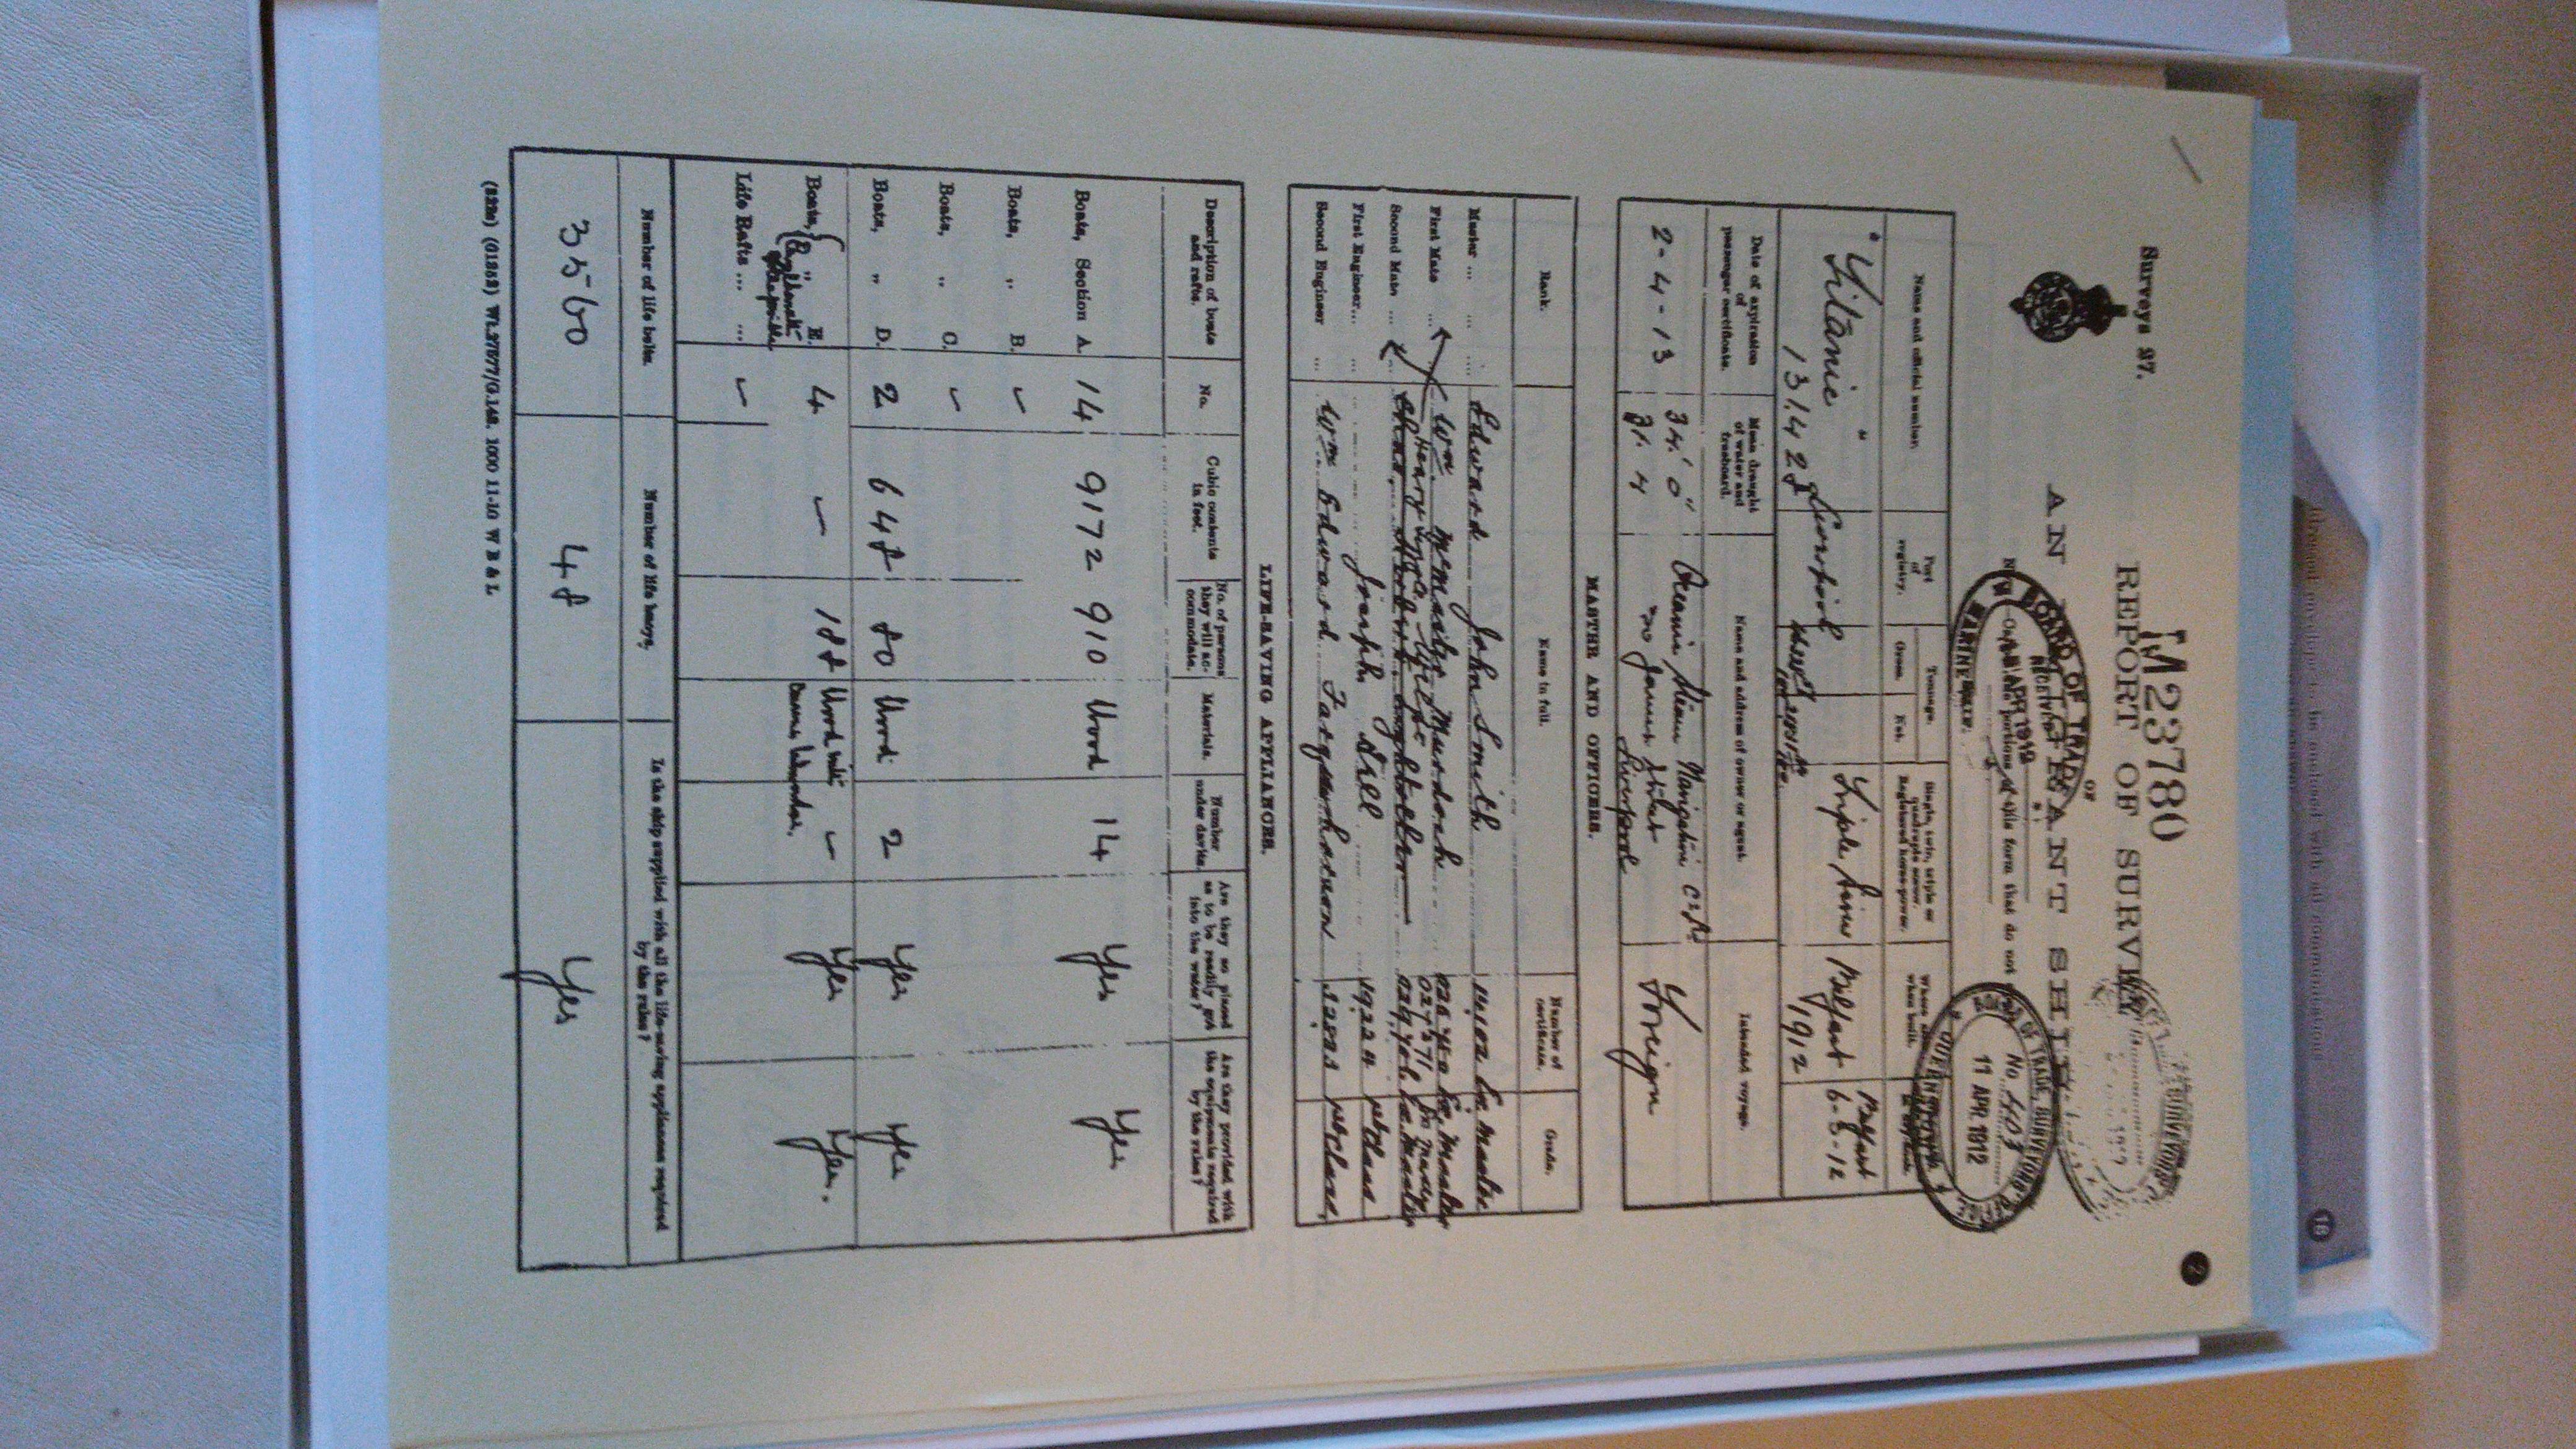 Surveys 27.
M23780
REPORT OF SURVEY
OF
AN EMIGRANT SHIP.
portions of this form that do not
BOARD OF TRADE
RECEIVED
APR 1912
MARINE
No. 403
11 APR 1912
Name and official number.
Port of registry.
Tonnage.
Gross.
Net.
Single, twin, triple or quadruple screw. Registered horse-power.
when built.
"Titanic"
131428
Liverpool
Triple Screw
Belfast
1912
Belfast
Date of expiration of passenger certificate.
Mean draught of water and freeboard.
Name and address of owner or agent.
Intended voyage.
2-4-13
34' 0"
Oceanic Steam Navigation Co Ld
30 James Street
Liverpool
Foreign
MASTER AND OFFICERS.
Rank.
Name in full.
Number of certificate.
Grade.
Master ... ... Edward John Smith
First Mate ... Wm McMaster Murdoch
Henry Tingle Wilde
Second Mate ...
First Engineer... ... Joseph Bell
Second Engineer ... Wm Edward Farquharson
LIFE-SAVING APPLIANCES.
Description of boats and rafts.
No.
Cubic contents in feet.
No. of persons they will accommodate.
Materials.
Number under davits.
Are they so placed as to be readily got into the water?
Are they provided with the equipments required by the rules?
Boats, Section A. 14 9172 910 Wood 14 Yes Yes
Boats, " B.
Boats, " C.
Boats, " D. 2 648 80 Wood 2 Yes Yes
Boats, " E. 4 188 Wood Yes Yes.
Engelhardt
Life Rafts ... ...
Number of life belts.
Number of life buoys.
Is the ship supplied with all the life-saving appliances required by the rules?
3560
48
Yes
(823s) (01353) Wt.27677/G.148. 1000 11-10 W B & L
2
16